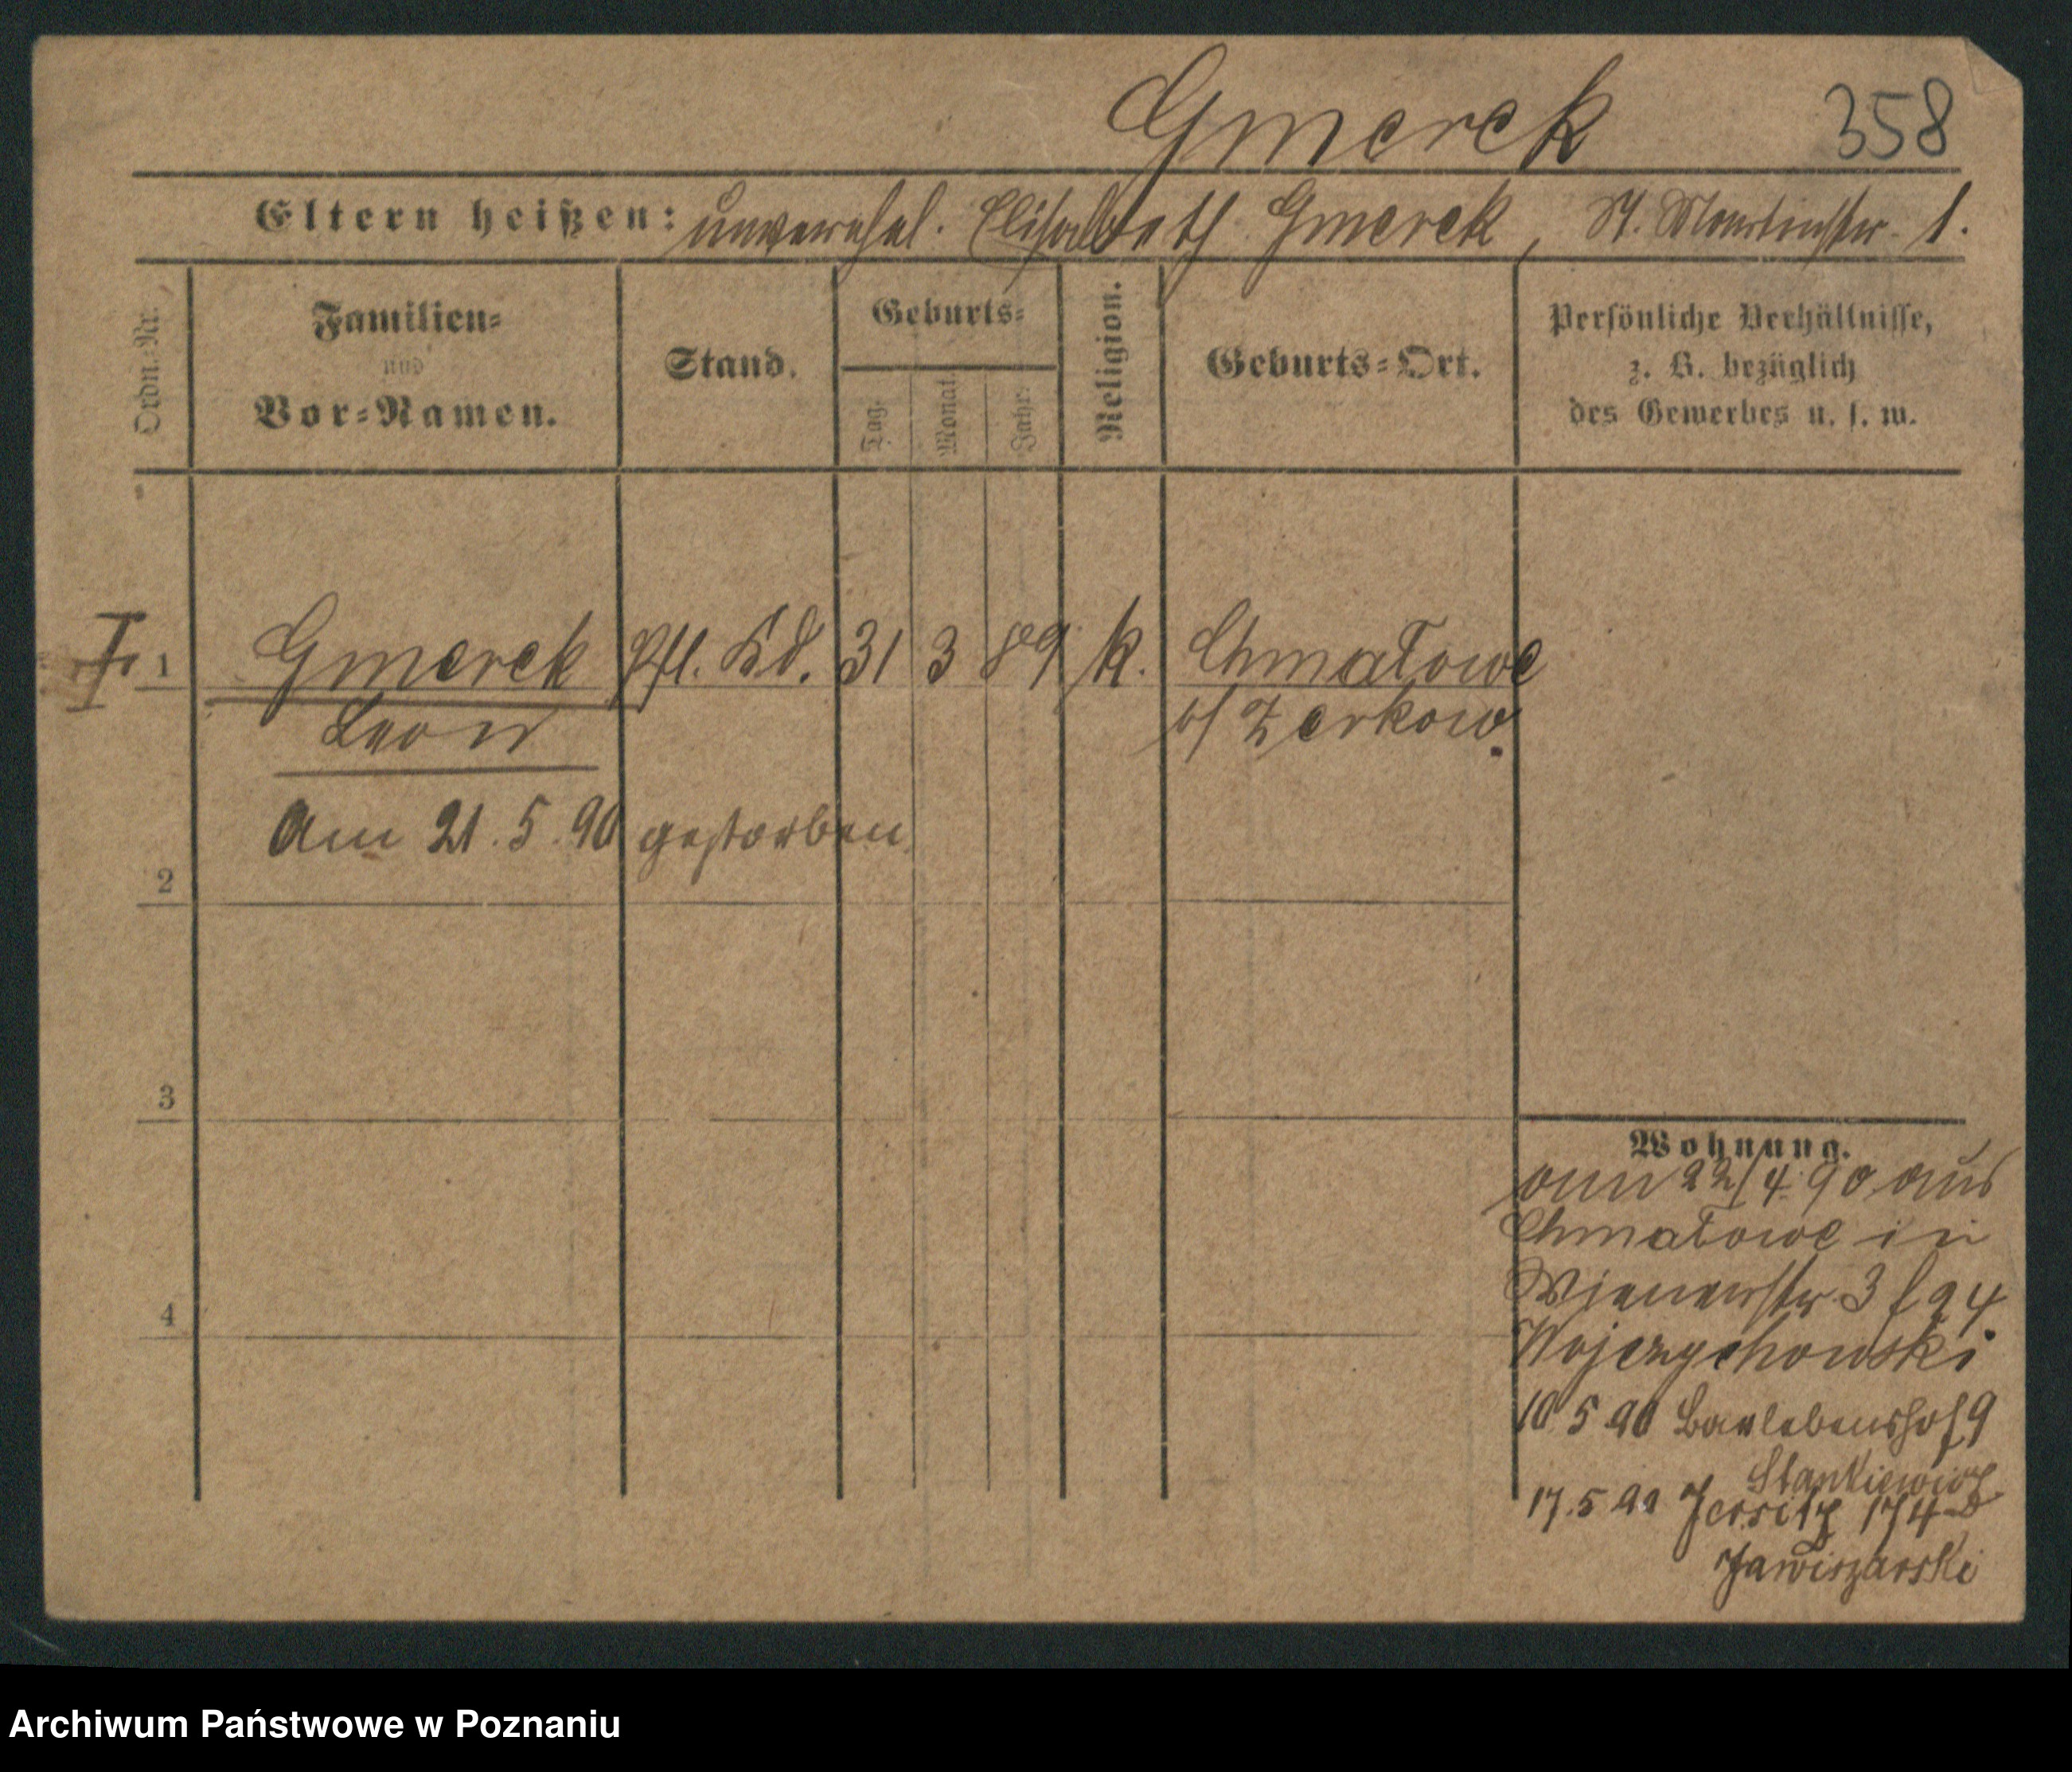 Gmerek 358
Eltern heißen: unverehel. Elisabeth Gmerek, St. Martinstr. 1.
Ordn.-Nr.
Familien-
und
Vor-Namen.
Stand.
Geburts-
Tag.
Monat.
Jahr.
Religion.
Geburts-Ort.
Persönliche Verhältnisse,
z. B. bezüglich
des Gewerbes u. s. w.
1 Gmerek Pfl. Kd. 31 3 89 k. Chmatowe
Leon b/ Zerkow.
Am 21.5.90 gestorben
2
3
4
Wohnung.
am 22/4 90 aus
Chmatowe in
Wienerstr. 3
Wojczychowski
10 5 90 Barlebenshof 9
Stankiewicz
17.5 90 Jersitz 174
Jawiszarski
Archiwum Państwowe w Poznaniu